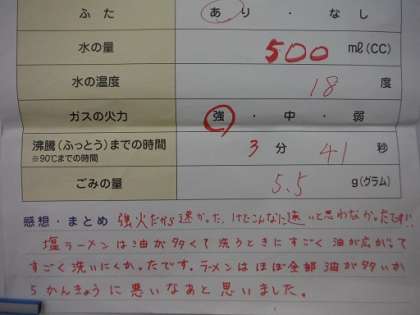 ふた あり・なし
水の量 500 mℓ(CC)
水の温度 18 度
ガスの火力 強・中・弱
沸騰(ふっとう)までの時間 3 分 41 秒
※90℃までの時間
ごみの量 5.5 g(グラム)
感想・まとめ 強火だから速かった。けどこんなに速いと思わなかったです!!
塩ラーメンは油が多くて洗うときにすごく油が広がって
すごく洗いにくかったです。ラーメンはほぼ全部油が多いか
らかんきょうに悪いなあと思いました。